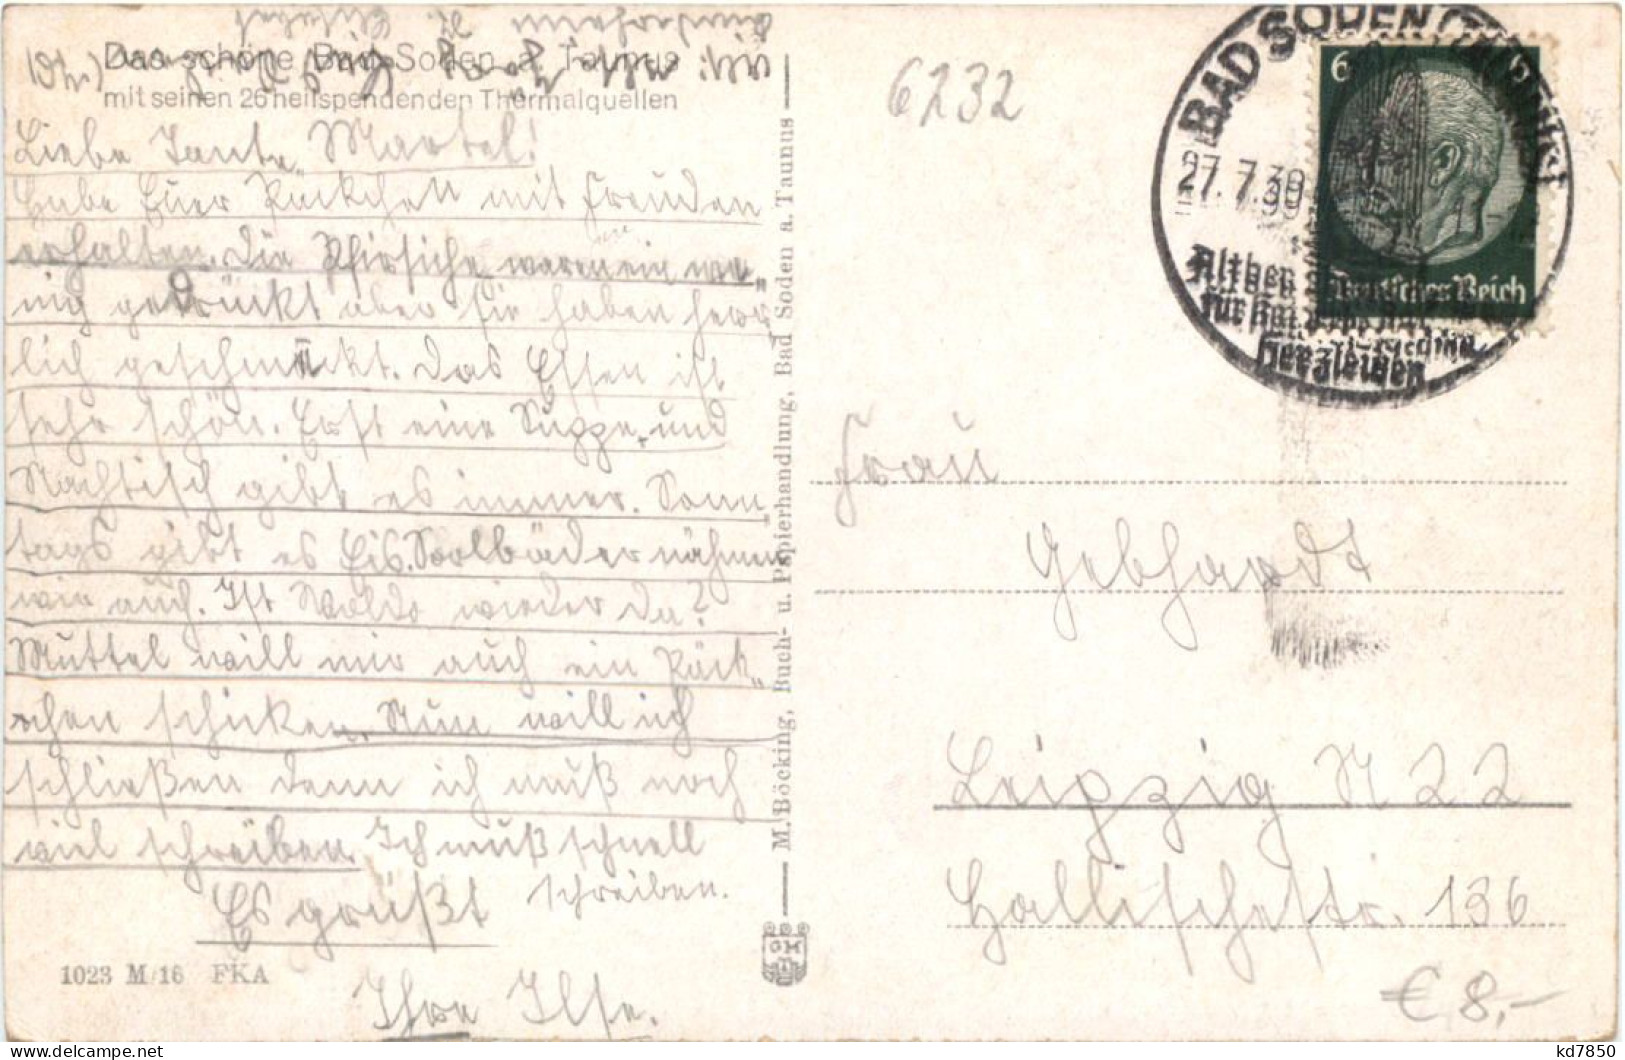 Das schöne Bad Soden a. Taunus
mit seinen 26 heilspendenden Thermalquellen
Liebe Tante Martel!
Habe Euer Päckchen mit Freuden
erhalten. Die Pfirsiche waren ein we„
nig gedrückt aber sie haben herr
lich geschmeckt. Das Essen ist
sehr schön. Erst eine Suppe und
Nachtisch gibt es immer. Sonn„
tags gibt es Eis. Soolbäder nähmen
wir auch. Ist Waldo wieder da?
Muttel will mir auch ein Päck„
chen schicken. Nun will ich
schließen denn ich muß noch
viel schreiben. Ich muß schnell
schreiben.
Es grüßt
Ihre Ilse.
1023 M/16 FKA
M. Böcking, Buch- u. Papierhandlung, Bad Soden a. Taunus
6232
BAD SODEN (TAUNUS)
27.7.39
Herzleiden
6
Deutsches Reich
Frau
Gebhardt
Leipzig N 22
Hallischestr. 136
€ 8,-
kd7850